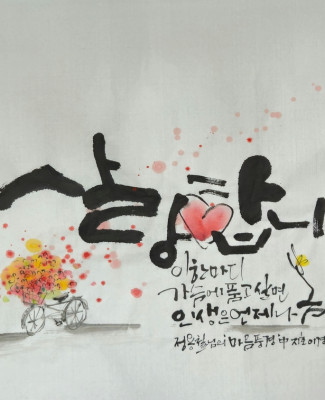 사랑합니
이 한마디
가슴에 품고 살면
인생은 언제나 봄
정용철님의 마음풍경 中 지호 이경